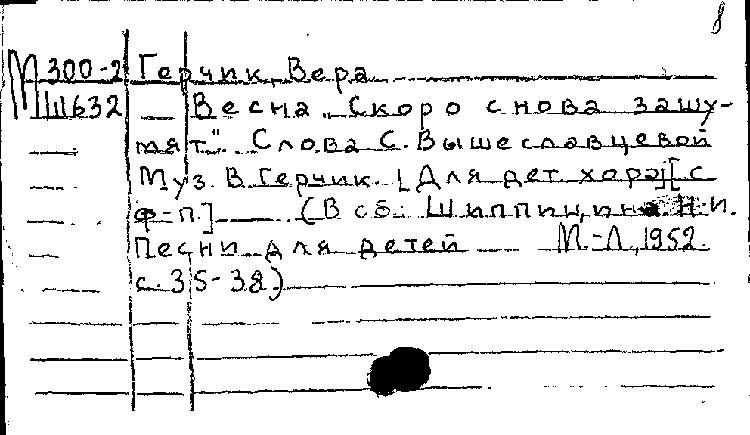 8
М 300-2 Герчик, Вера
Ш632 Весна „Скоро снова зашу-
мят". Слова С. Вышеславцевой
Муз. В. Герчик. [Для дет. хора] [с
ф-п.] (В сб.: Шиппищина Н.И.
Песни для детей М.-Л., 1952.
с. 35-38)